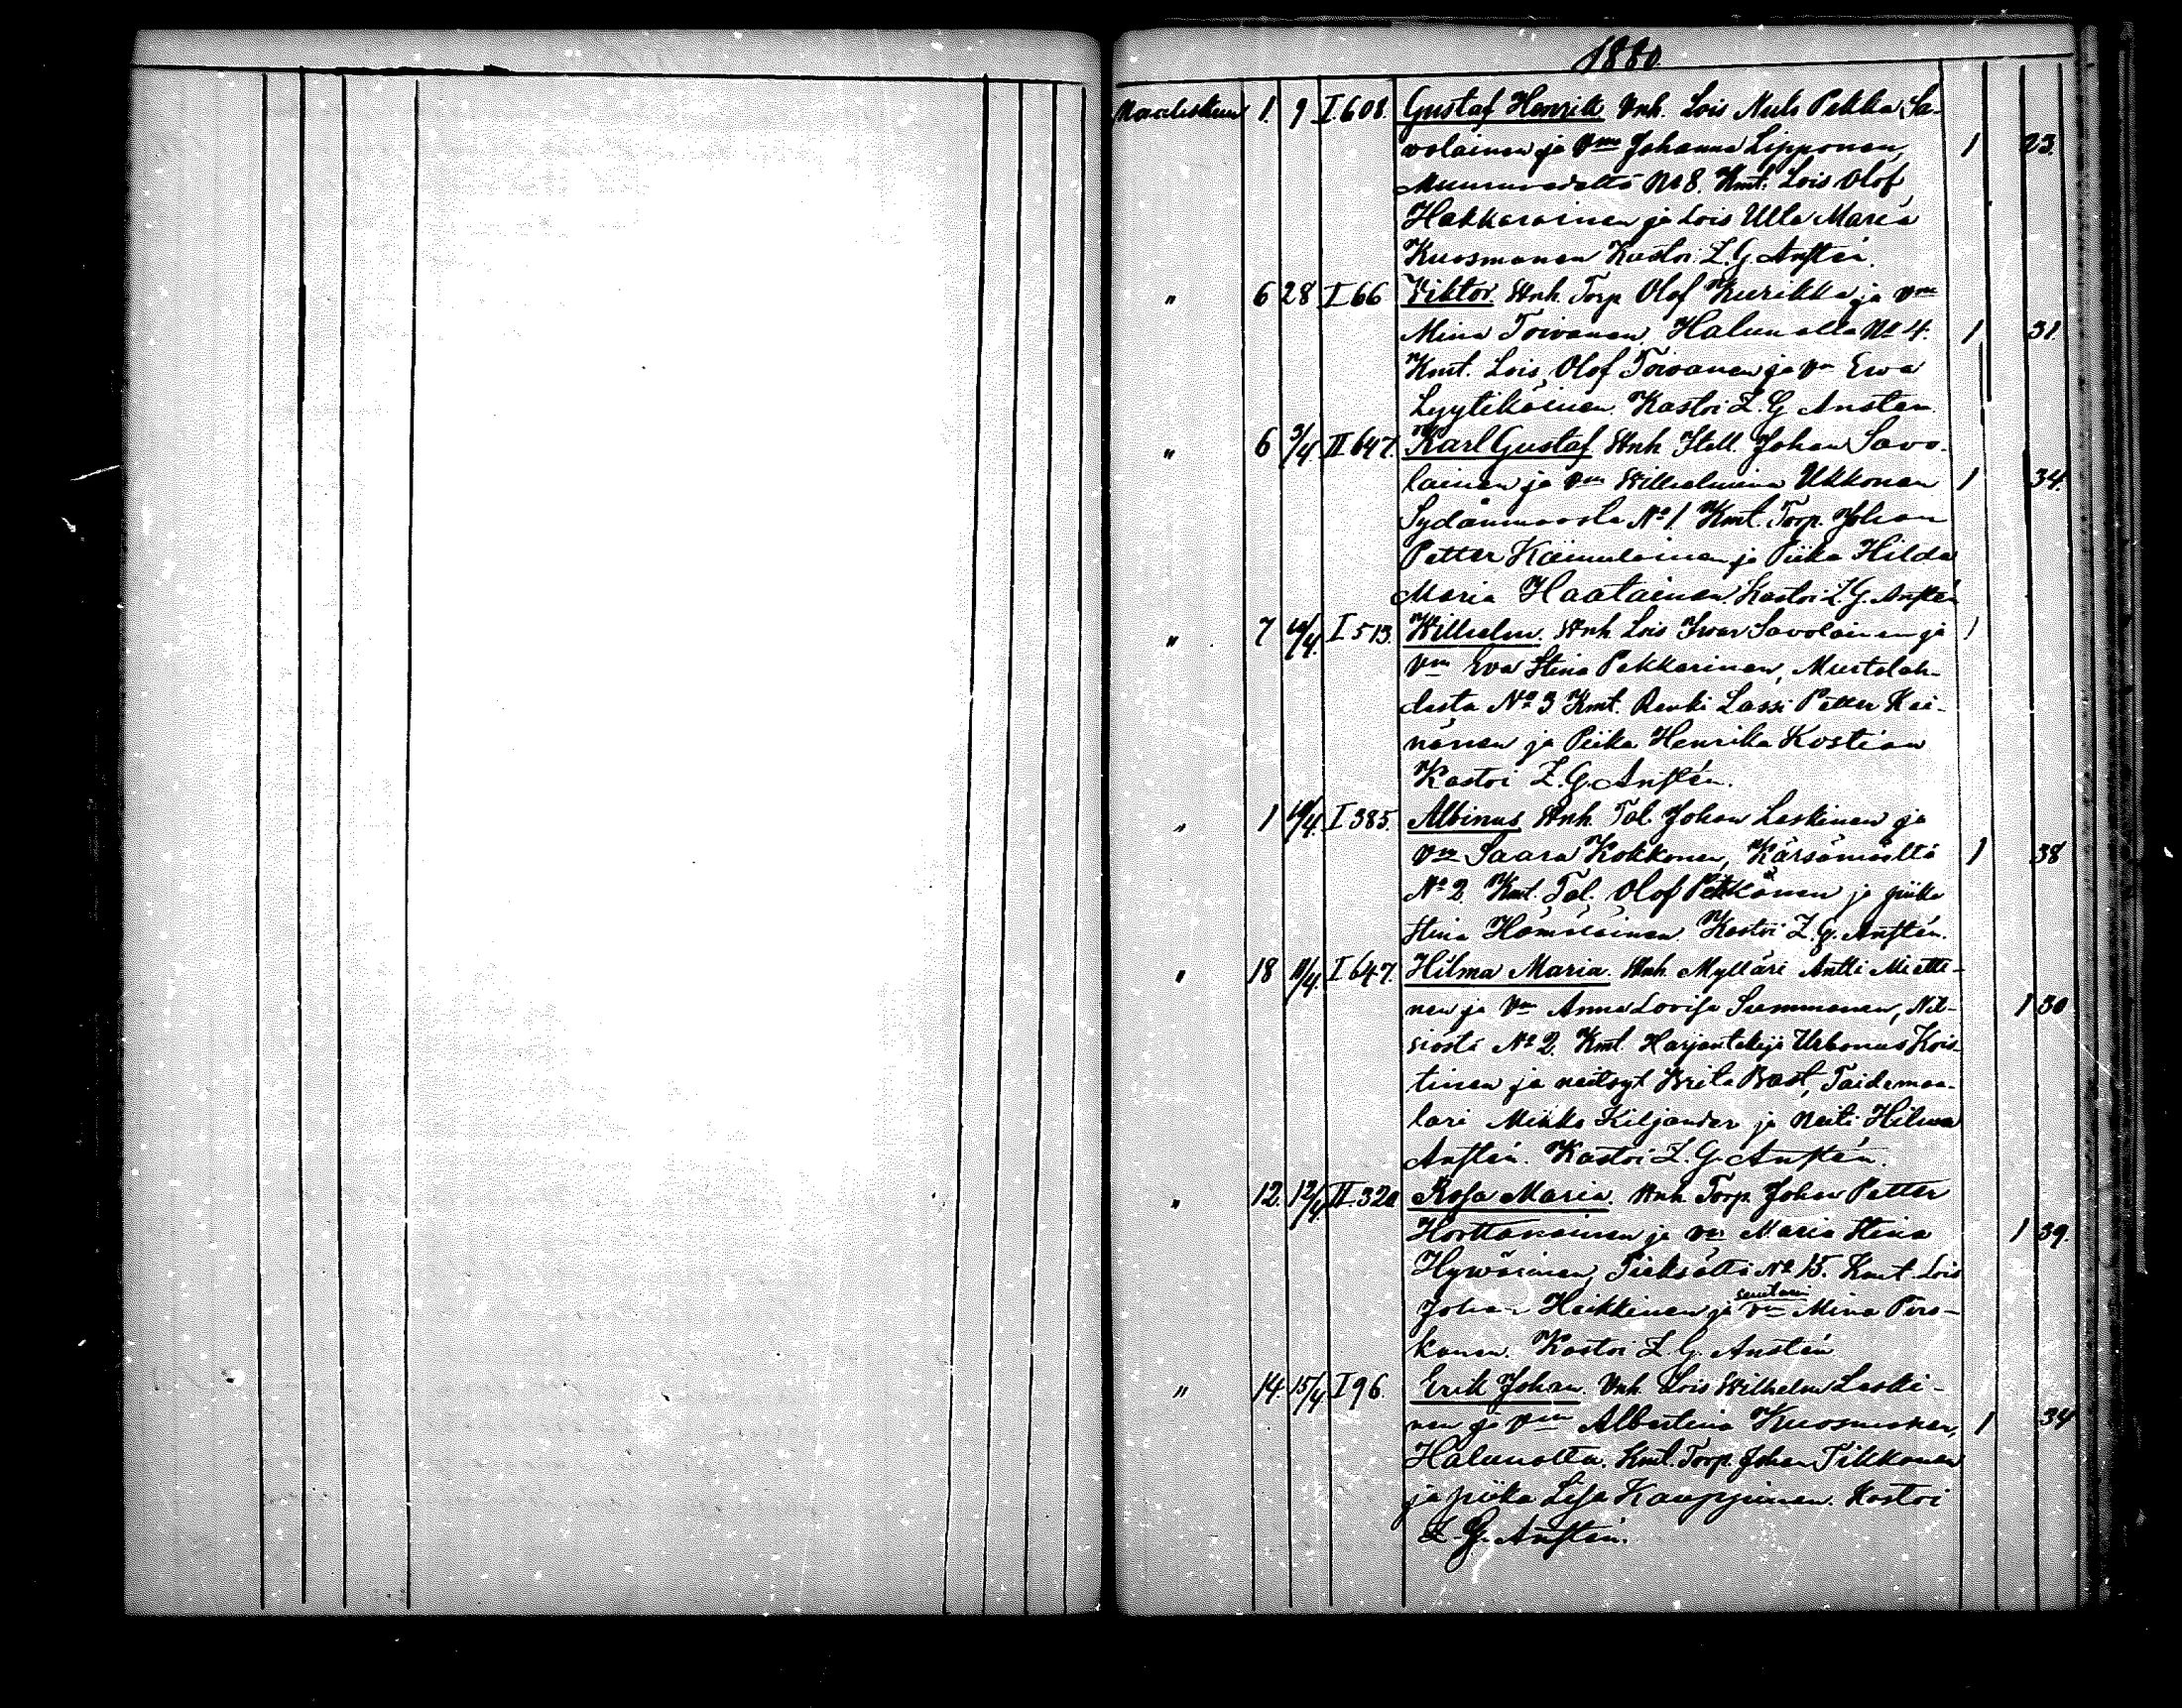 1880.
Maaliskuu 1. 9 I.608. Gustaf Henrik Vnh. Lois Nils Pekka Sa-
volainen ja Vmo Johanna Lipponen, 1 23.
Muuruvedeltä No 8. Kmt. Lois Olof
Hakkarainen ja Lois Ulla Maria
Kuosmanen Kastoi Z. G. Anstén.
" 6 28 I 66 Viktor. Vnh. Torp Olof Kurikka ja Vmo
Mina Toivanen, Halunalta No 4. 1 31.
Kmt. Lois Olof Toivanen ja Vm Ewa
Lyytikäinen. Kastoi Z. G. Ansten.
" 6 3/4. II 647. Karl Gustaf Vnh. Itell. Johan Savo-
lainen ja Vm Wilhelmina Ukkonen 1 34.
Sydänmaasta No 1. Kmt. Torp. Johan
Petter Kämäläinen ja Piika Hilda
Maria Haatainen. Kastoi Z. G. Anstén
" 7 4/4. I 513. Wilhelm. Vnh. Lois Iwar Savolainen ja 1
Vm Eva Stina Pekkarinen, Murtolah-
desta No 3 Kmt. Renki Lassi Petter Kei-
nänen ja Piika Henrika Kostian
Kastoi Z. G. Anstén.
" 1 10/4. I 385. Albinus Vnh. Tal. Johan Leskinen ja
Vm Saara Kokkonen, Kärsämäeltä 1 38
No 2. Kmt. Tal. Olof Pitkänen ja piika
Stina Hämäläinen. Kastoi Z. G. Anstén.
" 18 11/4. I 647. Hilma Maria. Vnh. Mylläri Antti Mietti-
nen ja Vm Anna Lovisa Summanen, Nil-
siästä No 2. Kmt. Harjantekijä Urbanus Kois- 1 30
tinen ja neitsyt Brita Bast, Taidemaa-
lari Mikko Kiljander ja Neiti Hilma
Anstén. Kastoi Z. G. Anstén.
" 12. 12/4 II.320 Rosa Maria. Vnh. Torp. Johan Petter
Horttanainen ja Vm Maria Stina 1 39.
Hyvärinen, Pieksältä No 15. Kmt. Lois
Johan Heikkinen ja suutarin Vm Mina Pirs-
kanen. Kastoi Z. G. Anstén
" 14. 15/4 I 96. Erik Johan. Vnh. Lois Wilhelm Leski-
nen ja Vm Albertina Kuosmanen, 1 34
Halunalta. Kmt. Torp. Johan Tikkanen
ja piika Lisa Kauppinen. Kastoi
Z. G. Anstén.